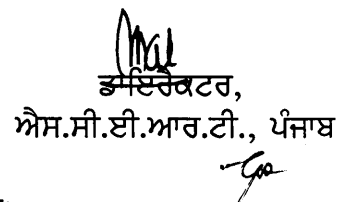 ਡਾਇਰੈਕਟਰ,
ਐਸ.ਸੀ.ਈ.ਆਰ.ਟੀ., ਪੰਜਾਬ